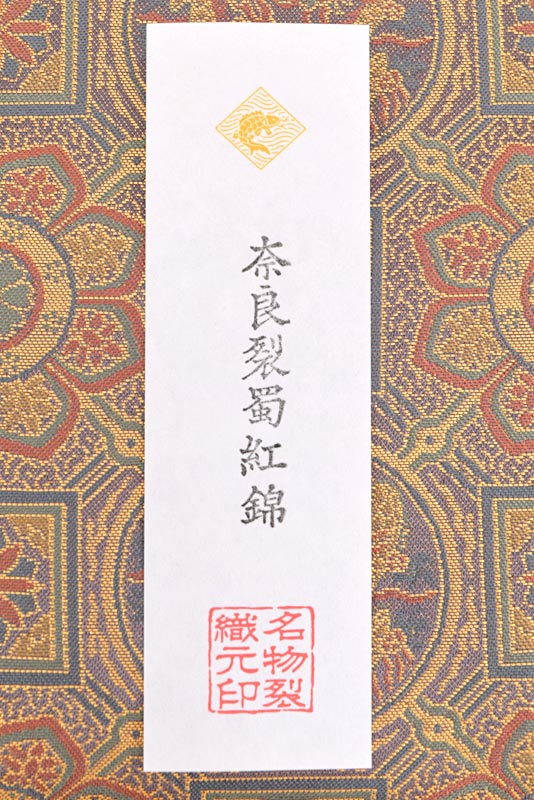 奈良裂蜀紅錦
名物裂
織元印